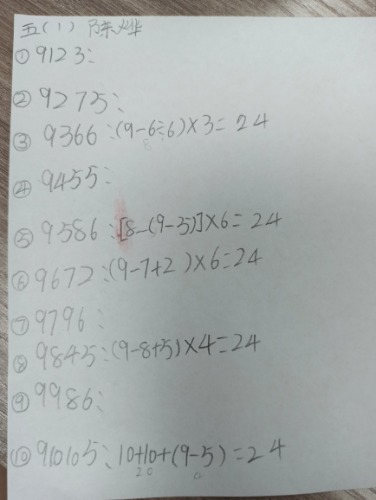 五(1) 陈烨
① 9123:
② 9275:
③ 9366:(9-6÷6)×3=24
④ 9455:
⑤ 9586:[8-(9-5)]×6=24
⑥ 9672:(9-7+2)×6=24
⑦ 9796:
⑧ 9845:(9-8+5)×4=24
⑨ 9986:
⑩ 910105:10+10+(9-5)=24
20